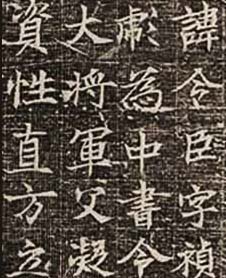 諱令臣字禎
為中書令
大將軍父凝
資性直方立